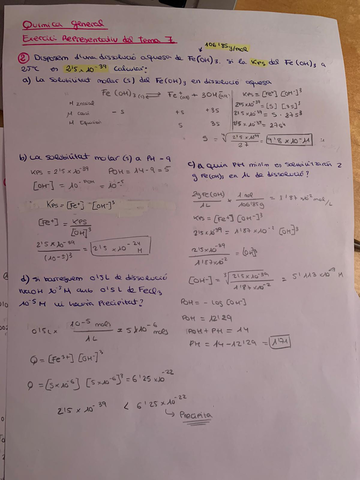 Química general
Exercici Representatiu del Tema 7
106'85g/mol
② Disposem d'una dissolució aquosa de Fe(OH)3. si la KPS del Fe(OH)3 a
25ºC és 2'5×10⁻³⁹ calcular:
a) La solubilitat molar (s) del Fe(OH)3 en dissolució aquosa
Fe(OH)3(s) ⇌ Fe³⁺(aq) + 3OH⁻(aq)
M inicial
M canvi -s +s +3s
M equilibri s 3s
KPS = [Fe³⁺][OH⁻]³
2'5×10⁻³⁹ = [s][3s]³
2'5×10⁻³⁹ = s · 27s³
2'5×10⁻³⁹ = 27s⁴
S = ⁴√(2'5×10⁻³⁹ / 27) = 9'8×10⁻¹¹ M
b) La solubilitat molar (s) a PH = 9
KPS = 2'5×10⁻³⁹ POH = 14-9 = 5
KPS = [Fe³⁺][OH⁻]³
[Fe³⁺] = KPS / [OH]³
2'5×10⁻³⁹ / (10⁻⁵)³ = 2'5×10⁻²⁴ M
c) A quin PH mínim es solubilitzaràn 2
g Fe(OH)3 en 1L de dissolució?
2g Fe(OH)3 / 1L · 1 mol / 106'85g = 1'87×10⁻² mol/L
KPS = [Fe³⁺][OH⁻]³
2'5×10⁻³⁹ = 1'87×10⁻² [OH⁻]³
2'5×10⁻³⁹ / 1'87×10⁻² = [OH]³
[OH⁻] = ³√(2'5×10⁻³⁹ / 1'87×10⁻²) = 5'113×10⁻¹³ M
POH = -log [OH⁻]
POH = 12'29
POH + PH = 14
PH = 14-12'29 = 1'71
d) si barregem 0'5L de dissolució
NaOH 10⁻⁵M amb 0'5L de FeCl3
10⁻⁵M hi haurà Precipitat?
0'5L × 10⁻⁵ mols / 1L = 5×10⁻⁶ mols
Q = [Fe³⁺][OH⁻]³
Q = [5×10⁻⁶] [5×10⁻⁶]³ = 6'25×10⁻²²
2'5×10⁻³⁹ < 6'25×10⁻²²
↳ Precipita